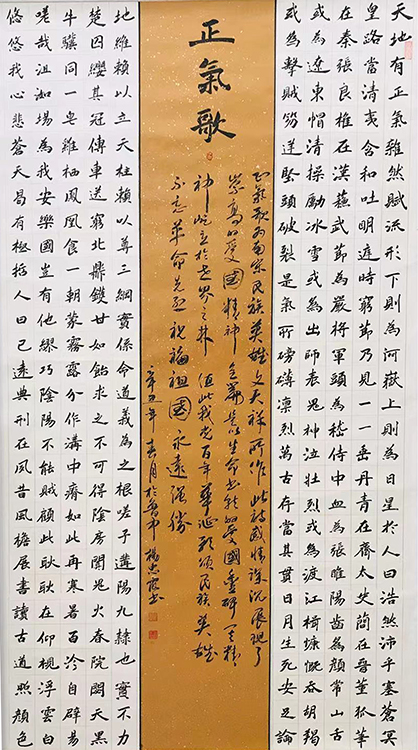 天地有正氣雜然賦流形下則為河嶽上則為日星於人曰浩然沛乎塞蒼冥
皇路當清夷含和吐明庭時窮節乃見一一垂丹青在齊太史簡在晉董狐筆
在秦張良椎在漢蘇武節為嚴將軍頭為嵇侍中血為張睢陽齒為顏常山舌
或為遼東帽清操勵冰雪或為出師表鬼神泣壯烈或為渡江楫慷慨吞胡羯
或為擊賊笏逆豎頭破裂是氣所磅礴凜烈萬古存當其貫日月生死安足論
正氣歌
正氣歌為南宋民族英雄文天祥所作此詩感情深沉展現了
崇高的愛國精神全篇是以生命書就的愛國碑精
神屹立於世界之林值此我党百年華誕歌頌民族英雄
不忘革命先烈祝福祖國永遠强勝
辛丑年春月於楊忠霞書
地維賴以立天柱賴以尊三綱實係命道義為之根嗟予遘陽九隸也實不力
楚囚纓其冠傳車送窮北鼎鑊甘如飴求之不可得陰房闃鬼火春院閟天黑
牛驥同一皂雞棲鳳凰食一朝蒙霧露分作溝中瘠如此再寒暑百沴自辟易
嗟哉沮洳場為我安樂國豈有他繆巧陰陽不能賊顧此耿耿在仰視浮雲白
悠悠我心悲蒼天曷有極哲人日已遠典刑在夙昔風檐展書讀古道照顏色